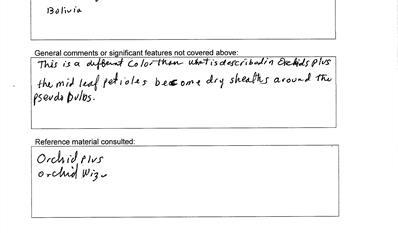 Bolivia
General comments or significant features not covered above:
This is a different color than what is described in Orchids plus
the mid leaf petioles become dry sheaths around the
pseudo bulbs.
Reference material consulted:
Orchid plus
Orchid Wiz